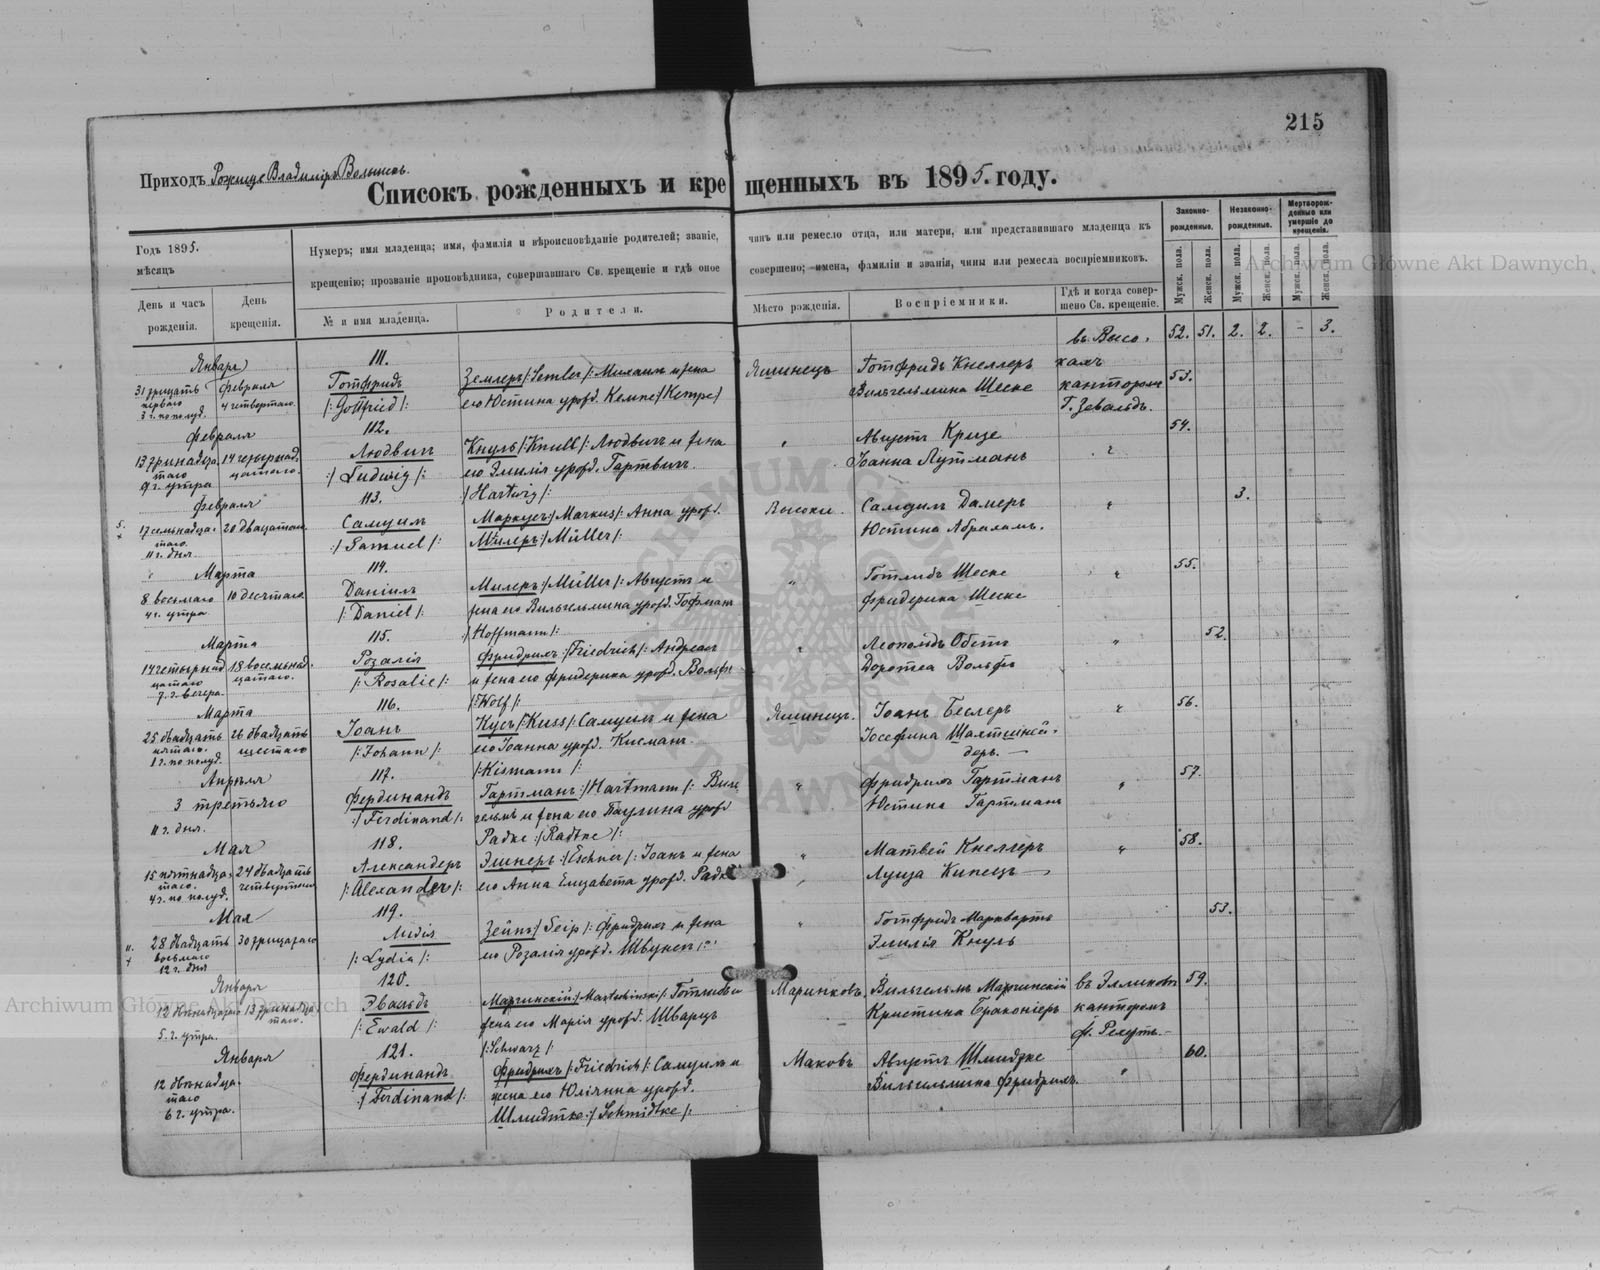 215
Приходъ Рожище Владиміръ Волынскъ.
Списокъ рожденныхъ и крещенныхъ въ 1895. году.
Годъ 1895.
мѣсяцъ
День и часъ рожденія.
День крещенія.
Нумеръ; имя младенца; имя, фамилія и вѣроисповѣданіе родителей; званіе, чинъ или ремесло отца, или матери, или представившаго младенца къ
крещенію; прозваніе проповѣдника, совершавшаго Св. крещеніе и гдѣ оное совершено; имена, фамиліи и званія, чины или ремесла воспріемниковъ.
№ и имя младенца.
Родители.
Мѣсто рожденія.
Воспріемники.
Гдѣ и когда совершено Св. крещеніе.
Законнорожденные.
Незаконнорожденные.
Мертворожденные или умершіе до крещенія.
Мужск. пола.
Женск. пола.
Мужск. пола.
Женск. пола.
Мужск. пола.
Женск. пола.
52. 51. 2. 2. - 3.
Января
31 тридцать перваго 3 г. по полуд.
февраля 4 четвертаго.
111.
Готфридъ
/: Gottfried :/
Землеръ /: Semler :/ Михаилъ и жена
его Юстина урожд. Кемпе /Kempe/
Яминецъ
Готфридъ Кнеллеръ
Вильгельмина Шеске
въ Высокахъ
канторомъ
Г. Зевальдъ.
53.
февраля
13 тринадцатаго 9 г. утра
14 четырнадцатаго.
112.
Людвигъ
:/ Ludwig /:
Кнуль /: Knull /: Людвигъ и жена
его Эмилія урожд. Гартвигъ.
/ Hartwig /:
Августъ Кризе
Іоанна Лутманъ
54.
февраля
17 семьнадцатаго. 11 г. дня
20 двадцатаго.
113.
Самуилъ
:/ Samuel /:
Маркусъ :/ Markus /: Анна урожд.
Милеръ :/ Müller /:
Высоки
Самуилъ Далеръ
Юстина Абрахамъ.
3.
Марта
8 восьмаго 4 г. утра
10 десятаго.
114.
Даніилъ
/: Daniel /:
Милеръ :/ Müller /: Августъ и
жена его Вильгельмина урожд. Гофманъ
:/ Hoffmann /:
Готлибъ Шеске
фридерика Шеске
55.
Марта
14 четырнадцатаго 7. г. вечера.
18 восемьнадцатаго.
115.
Розалія
/: Rosalie /:
Фридрихъ :/ Friedrich /: Андреасъ
и жена его фридерика урожд. Вольфъ
/: Wolf /:
Леополдъ Обстъ
Доротеа Вольфъ
52.
Марта
25 двадцать пятаго. 1 г. по полуд.
26 двадцать шестаго
116.
Іоанъ
/: Johann /:
Кусъ /: Kuss /: Самуилъ и жена
его Іоанна урожд. Кисманъ.
/: Kismann /:
Яминецъ.
Іоанъ Беслеръ
Іосефина Шахтшнейдеръ. —
56.
Апрѣля
3 третьяго
11 г. дня.
117.
Фердинандъ
:/ Ferdinand /:
Гартманъ :/ Hartmann /: Вильгельмъ и жена его Паулина урожд
Радке :/ Radtke /:
фридрихъ Гартманъ
Юстина Гартманъ
57.
Мая
15 пятнадцатаго. 4 г. по полуд.
24 двадцать четвертаго
118.
Александеръ
/: Alexander /:
Эшнеръ :/ Eschner /: Іоанъ и жена
его Анна Елизавета урожд. Радке
Матвей Кнеллеръ
Луиза Кинецъ —
58.
Мая
28 двадцать восьмаго 12 г. дня
30 тридцатаго
119.
Лидія
/: Lydia /:
Зейпъ / Seip /: фридрихъ и жена
его Розалія урожд.
Готфридъ Марквартъ
Эмилія Кнуль
53.
Января
12 двѣнадцатаго 5. г. утра.
13 тринадцатаго.
120.
Эвальдъ
/: Ewald /:
Готлибъ и
жена его Марія урожд. Шварцъ
/: Schwarz /:
Маринковъ
Вильгельмъ
Кристина Браконіеръ
канторомъ
59.
Января
12 двѣнадцатаго 6 г. утра.
121.
Фердинандъ
:/ Ferdinand /:
Фридрихъ /: Friedrich /: Самуилъ и
жена его Юліянна урожд.
Шмидтке :/ Schmidtke /:
Маковъ
Августъ Шмидтке
Вильгельмина фридрихъ.
60.
Archiwum Główne Akt Dawnych
Archiwum Główne Akt Dawnych